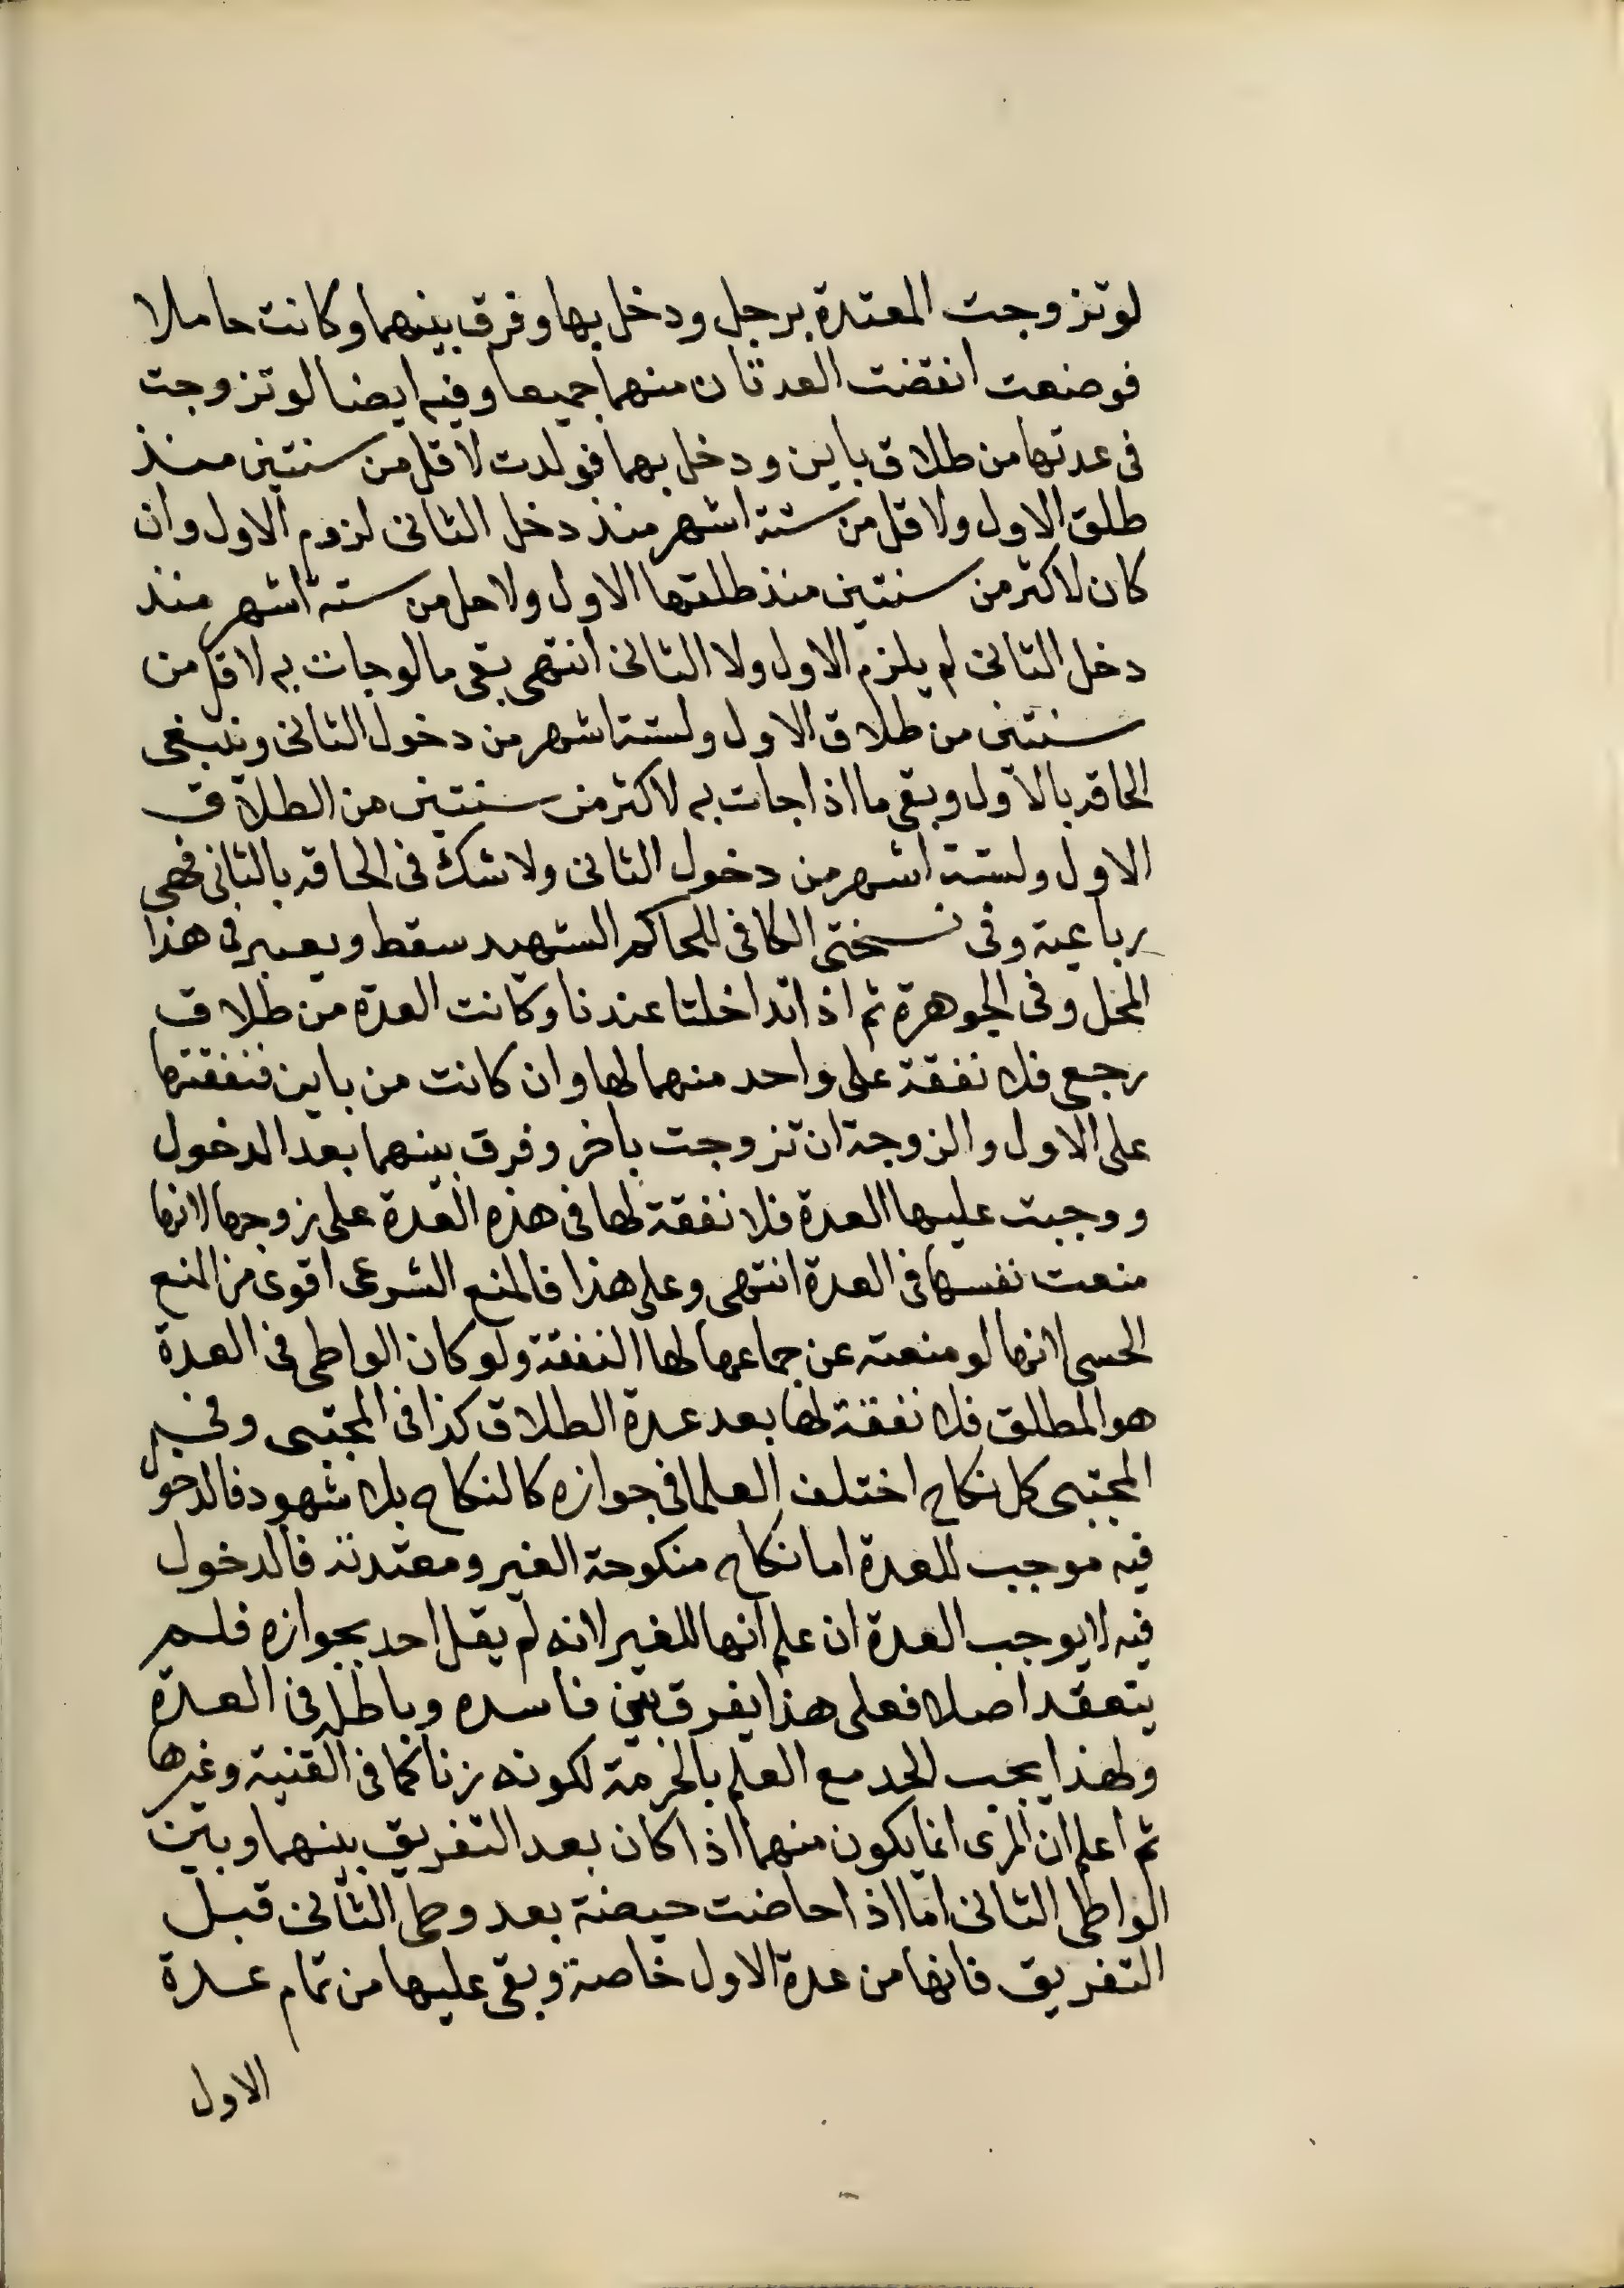 لو تزوجت المعتدة برجل ودخل بها وفرق بينهما وكانت حاملا
فوضعت انقضت العدتان منهما جميعا وفيه ايضا لو تزوجت
فى عدتها من طلاق باين ودخل بها فولدت لاقل من سنتين منذ
طلق الاول ولاقل من ستة اشهر منذ دخل الثانى لزوم الاول وان
كان لاكثر من سنتين منذ طلقها الاول ولاحل من ستة اشهر منذ
دخل الثانى لم يلزم الاول ولا الثانى انتهى بقى مالو جات به لاقل من
سنتين من طلاق الاول ولستة اشهر من دخول الثانى وينبغى
الحاقه بالاول وبقى ما اذا جات به لاكثر من سنتين من الطلاق
الاول ولستة اشهر من دخول الثانى ولا شك فى الحاقه بالثانى فهى
رباعية وفى نسختى الكافى للحاكم الشهيد سقط ويعبر فى هذا
المحل وفى الجوهرة ثم اذا تداخلتا عندنا وكانت العدة من طلاق
رجعى فلا نفقة على واحد منهما لها وان كانت من باين فنفقتها
على الاول والزوجة ان تزوجت باخر وفرق بينهما بعد الدخول
ووجبت عليها العدة فلا نفقة لها فى هذه العدة على زوجها لانها
منعت نفسها فى العدة انتهى وعلى هذا فالمنع الشرعى اقوى من المنع
الحسى لانها لو منعته عن جماعها لها النفقة ولو كان الواطى فى العدة
هو المطلق فلا نفقة لها بعد عدة الطلاق كذا فى المجتبى وفى
المجتبى كل نكاح اختلف العلما فى جوازه كالنكاح بلا شهود فالدخو
فيه موجب للعدة اما نكاح منكوحة الغير ومعتدته فالدخول
فيه لا يوجب العدة ان علم انها للغير لانه لم يقل احد بجوازه فلم
يتعقد اصلا فعلى هذا يفرق بين فاسده وباطله فى العدة
ولهذا يجب الحد مع العلم بالحرمة لكونه زنا كما فى القنية وغيرها
ثم اعلم ان المرى انما يكون منهما اذا كان بعد التفريق بينهما وبين
الواطى الثانى اما اذا حاضت حيضة بعد وطى الثانى قبل
التفريق فانها من عدة الاول خاصة وبقى عليها من تمام عدة
الاول